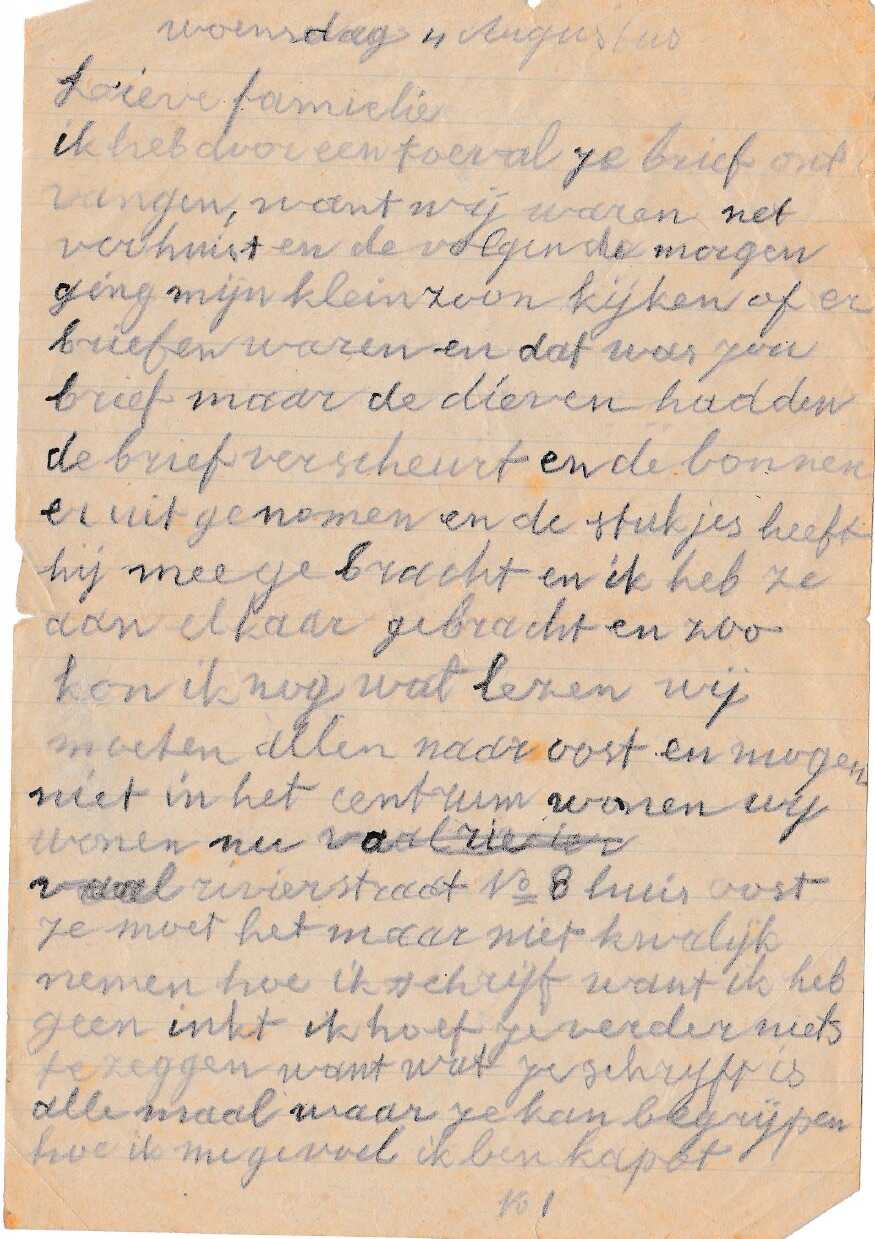 woensdag 4 Augustus
Lieve famielie
ik heb door een toeval je brief ont
vangen, want wij waren net
verhuist en de volgende morgen
ging mijn kleinzoon kijken of er
brieven waren en dat was jou
brief maar de dieven hadden
de brief verscheurt en de bonnen
er uit genomen en de stukjes heeft
hij mee gebracht en ik heb ze
aan elkaar gebracht en zoo
kon ik nog wat lezen wij
moeten allen naar oost en mogen
niet in het centrum wonen wij
wonen nu
vaal rivierstraat No 8 huis oost
je moet het maar niet kwalijk
nemen hoe ik schrijf want ik heb
geen inkt ik hoef je verder niets
te zeggen want wat je schrijft is
alle maal waar je kan begrijpen
hoe ik me gevoel ik ben kapot
No 1